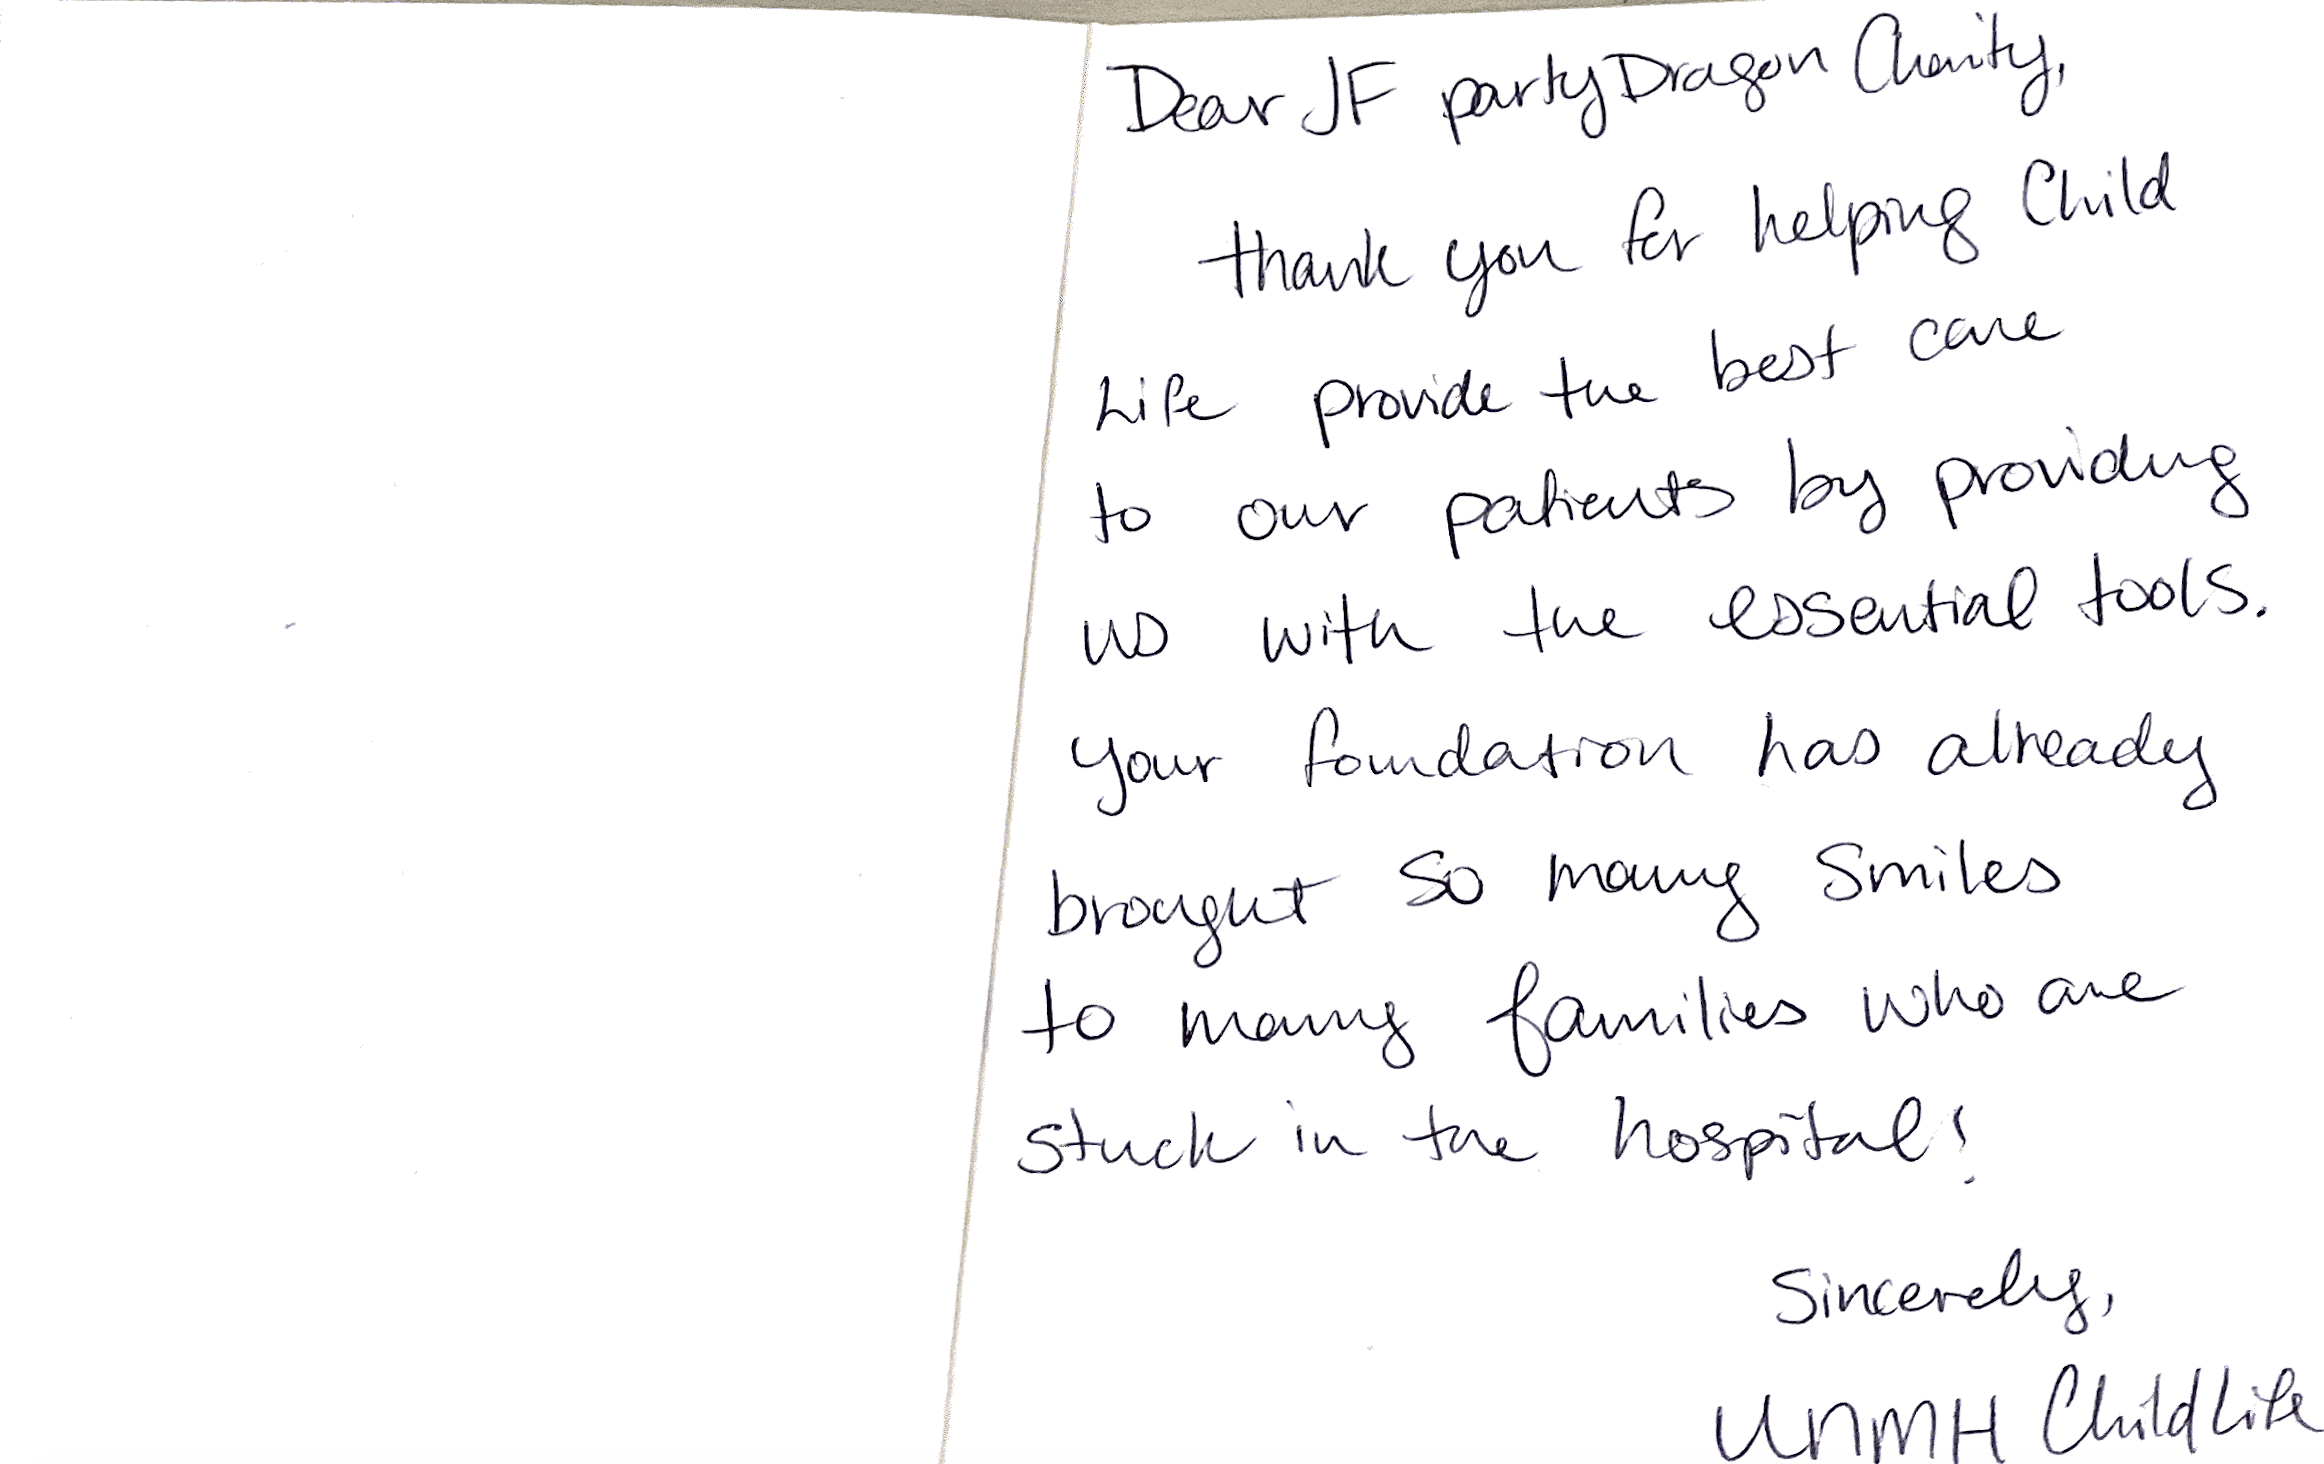 Dear JF partyDragon Charity,
thank you for helping Child
Life provide the best care
to our patients by providing
us with the essential tools.
Your foundation has already
brought so many smiles
to many families who are
stuck in the hospital!
Sincerely,
UNMH Child Life